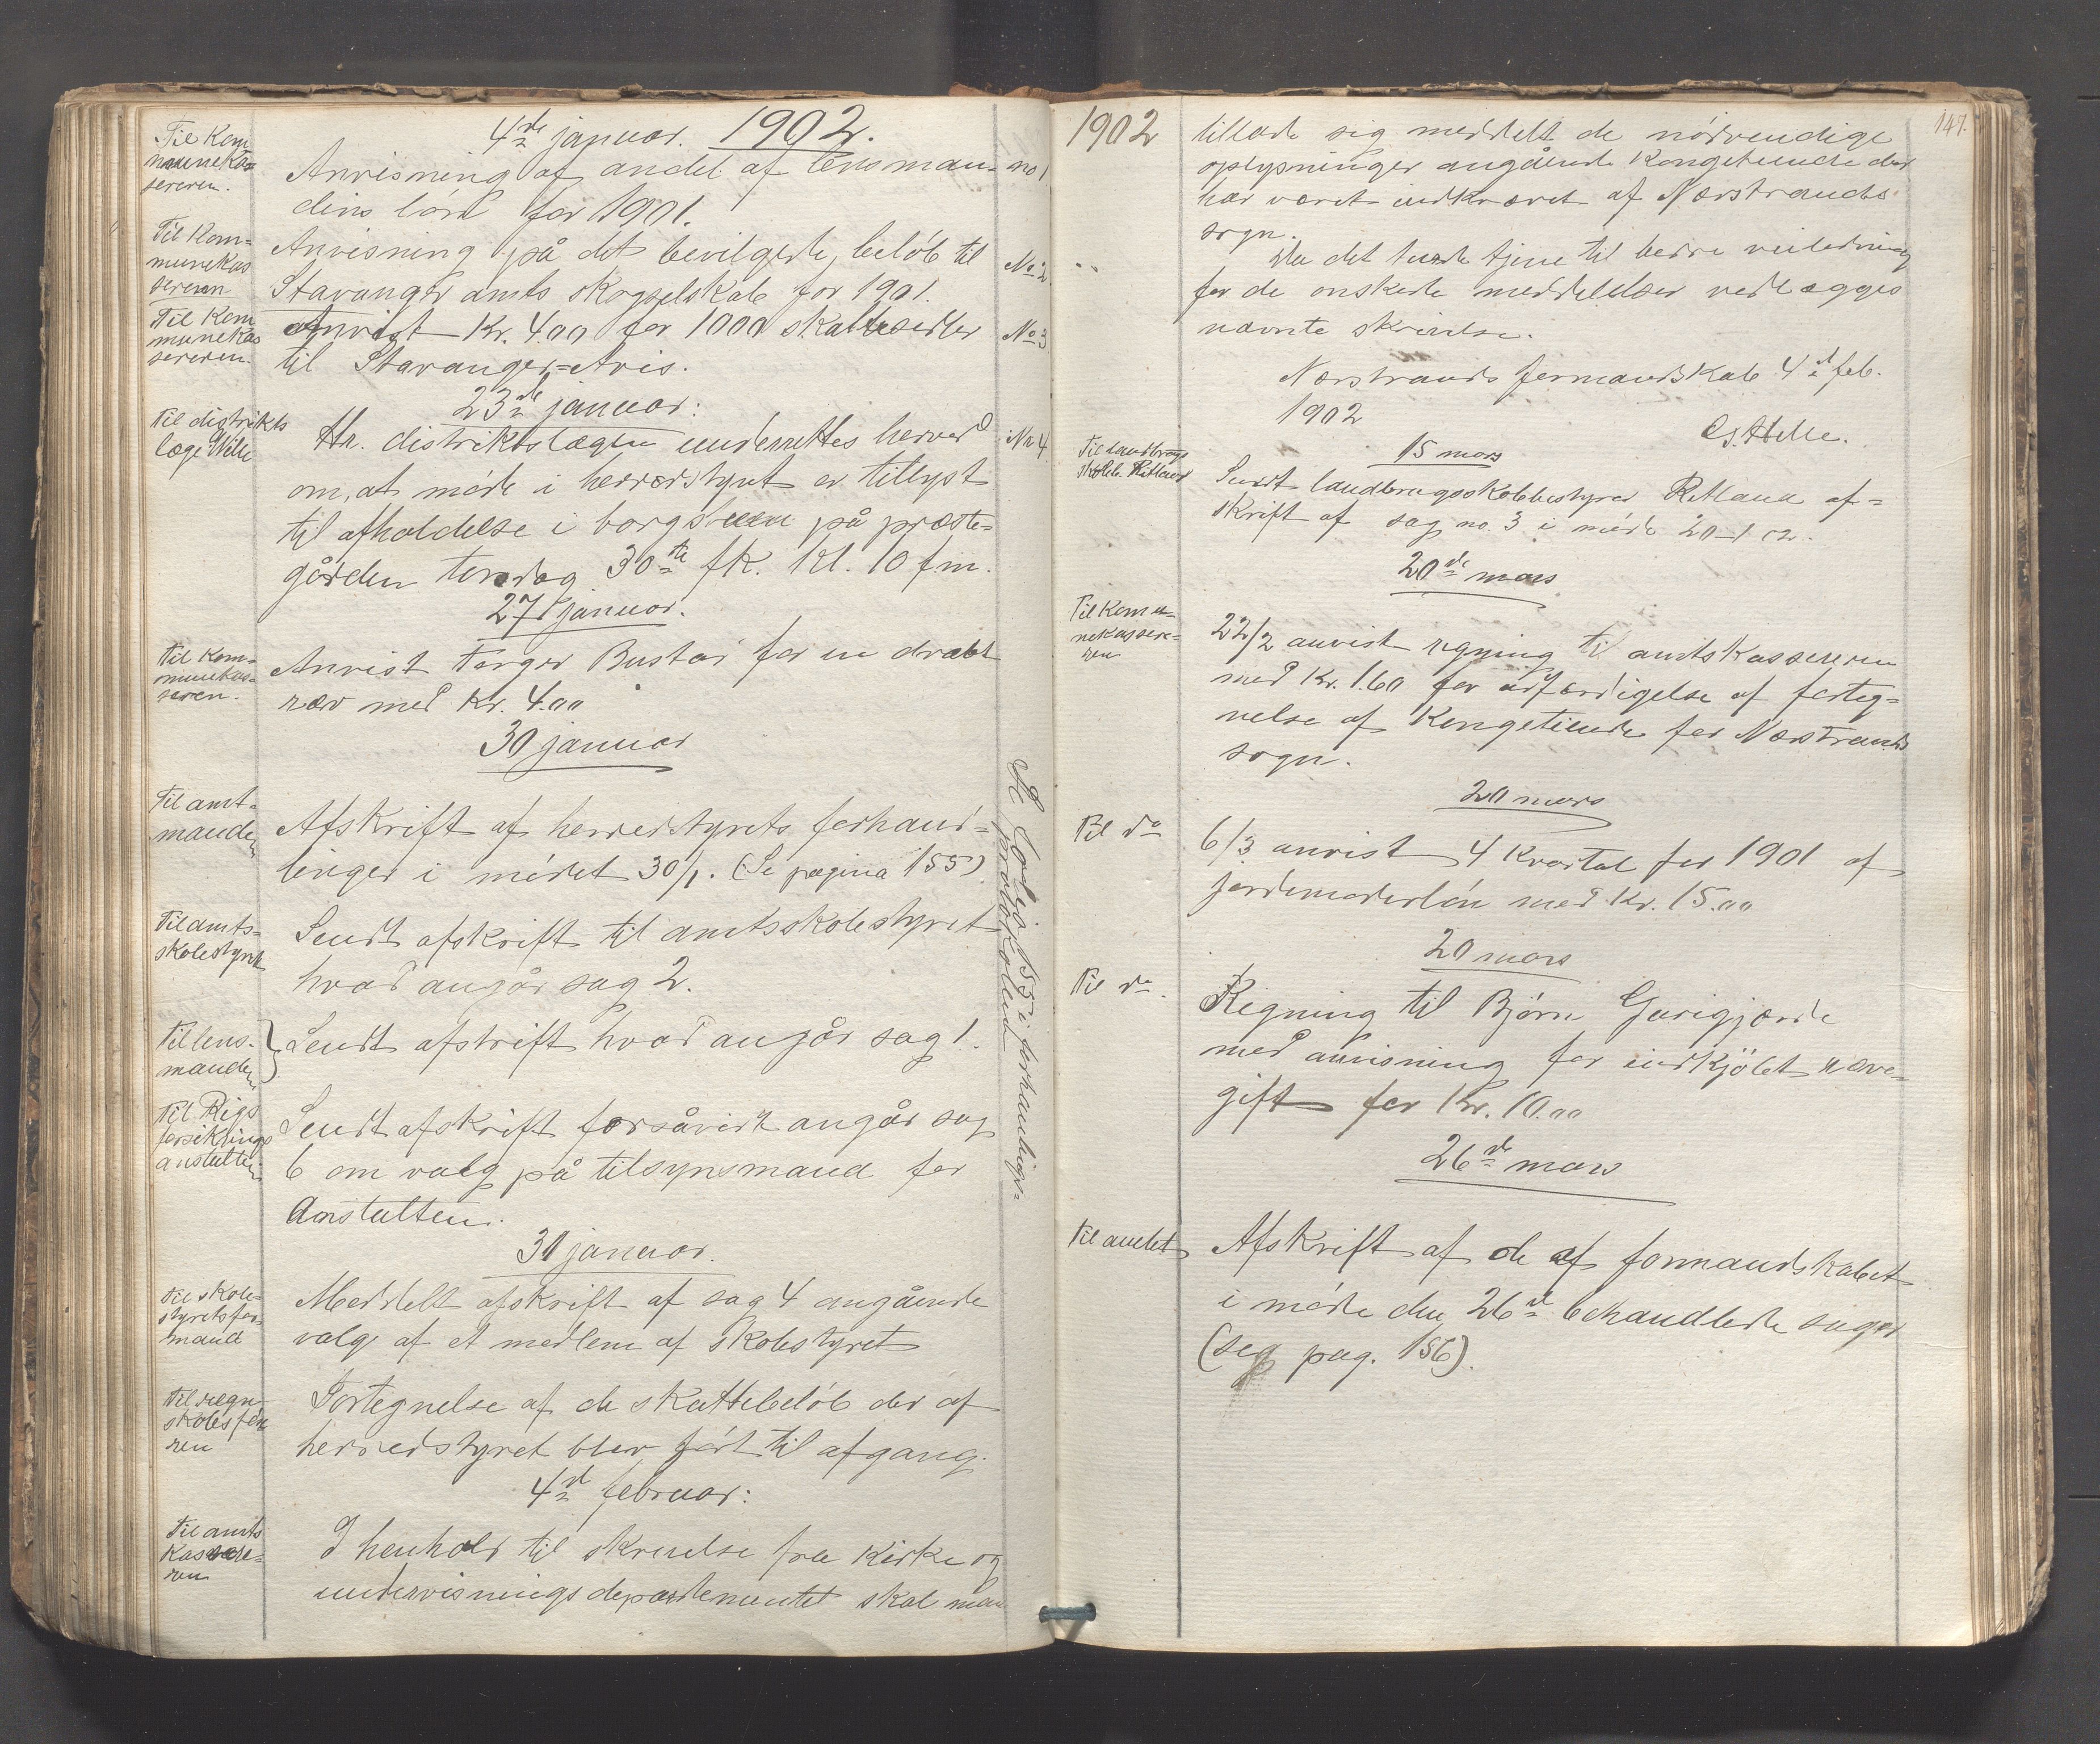 4de januar. 1902.
Til Kom
munekas=
sereren.
Anvisning af andel af lensman= no 1
dens løn for 1901.
Til Kom=
munekas
sereren
Anvisning på det bevilgede beløb til No 2
Stavanger amts skogselskab for 1901.
Til Kom
munekas
sereren.
Anvist Kr. 4.00 for 1000 skattesedler No 3
til Stavanger=Avis.
23de januar:
Til distrikts
læge Wille
Hr. distriktslægen underrettes herved No 4.
om, at møde i herredstyret er tillyst
til afholdelse i borgstuen på præste=
gården torsdag 30te fk. kl. 10 f.m.
27 januar.
Til kom=
munekas=
seren.
Anvist Torger Bustad for en dræbt
ræv med Kr. 4.00
30 januar
Til amt=
manden
Afskrift af herredstyrets forhand=
linger i mødet 30/1. (Se pagina 155)
Til amts=
skolestyret
Sendt afskrift til amtsskolestyret
hvad angår sag 2.
Til lens=
manden
Sendt afskrift hvad angår sag 1.
Til Rigs
forsikrings
anstalten
Sendt afskrift forsåvidt angår sag
6 om valg på tilsynsmand for
Anstalten.
31 januar.
Til skole=
styrets for=
mand
Meddelt afskrift af sag 4 angående
valg af et medlem af skolestyret
Til regn
skabsføre
ren
Fortegnelse af de skattebeløb der af
herredstyret blev ført til afgang.
4de februar:
Til amts
kassere=
ren
I henhold til skrivelse fra Kirke og
undervisningsdepartementet skal man
155 i forhandlings=
protokollen
147.
1902
tillade sig meddelt de nødvendige
oplysninger angående Kongetiende der
har været indkrævet af Nærstrands
sogn.
Da det turde tjene til bedre veiledning
for de ønskede meddelelser vedlægges
nævnte skrivelse.
Nærstrands formandskab 4de feb.
1902
Helle.
15 mars
Til landbrugs
skoleb. Retland
Sendt landbrugsskolebestyrer Retland af=
skrift af sag no. 3 i møde 20-1 02.
20de mars
Til Komu=
nekassere=
ren
22/2 anvist regning til amtskassereren
med Kr. 1.60 for udfærdigelse af forteg=
nelse af Kongetiende for Nærstrands
sogn.
20 mars
Til do
6/3 anvist 4 Kvartal for 1901 af
jordemoderløn med Kr. 15.00
20 mars
Til do.
Regning til Bjørn Garigjærde
med anvisning for indkjøbt ræve=
gift for Kr. 10.00
26de mars
Til amtet
Afskrift af de af formandskabet
i møde den 26de behandlede sager
(se pag. 156).